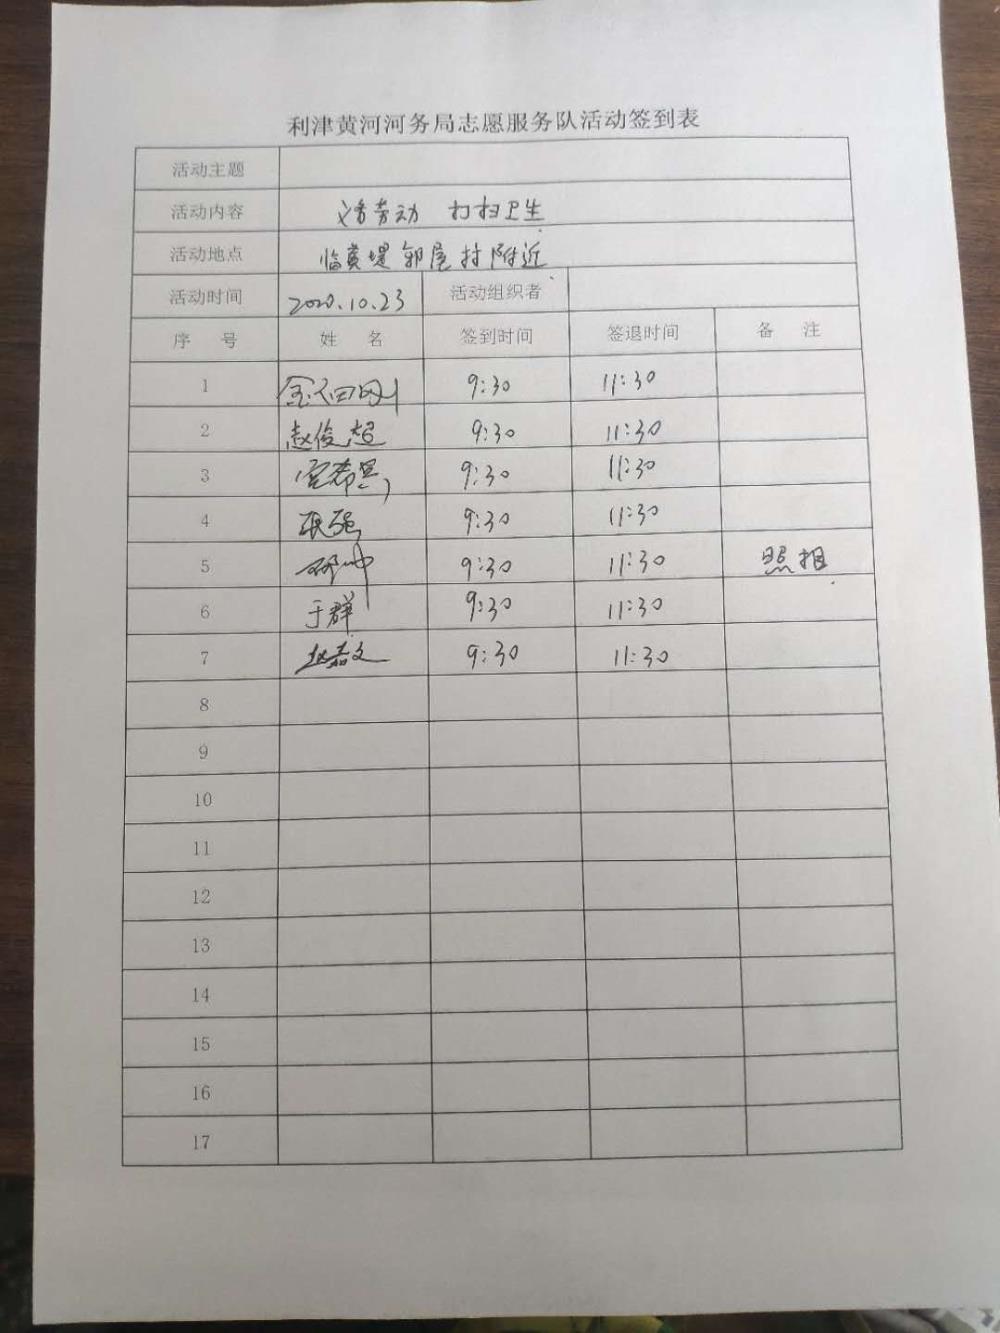 利津黄河河务局志愿服务队活动签到表
活动主题
活动内容 义务劳动 打扫卫生
活动地点 临黄堤 郭屋村附近
活动时间 2020.10.23 活动组织者
序 号 姓 名 签到时间 签退时间 备 注
1 9:30 11:30
2 赵俊超 9:30 11:30
3 9:30 11:30
4 张强 9:30 11:30
5 9:30 11:30 照相
6 于群 9:30 11:30
7 赵嘉文 9:30 11:30
8
9
10
11
12
13
14
15
16
17